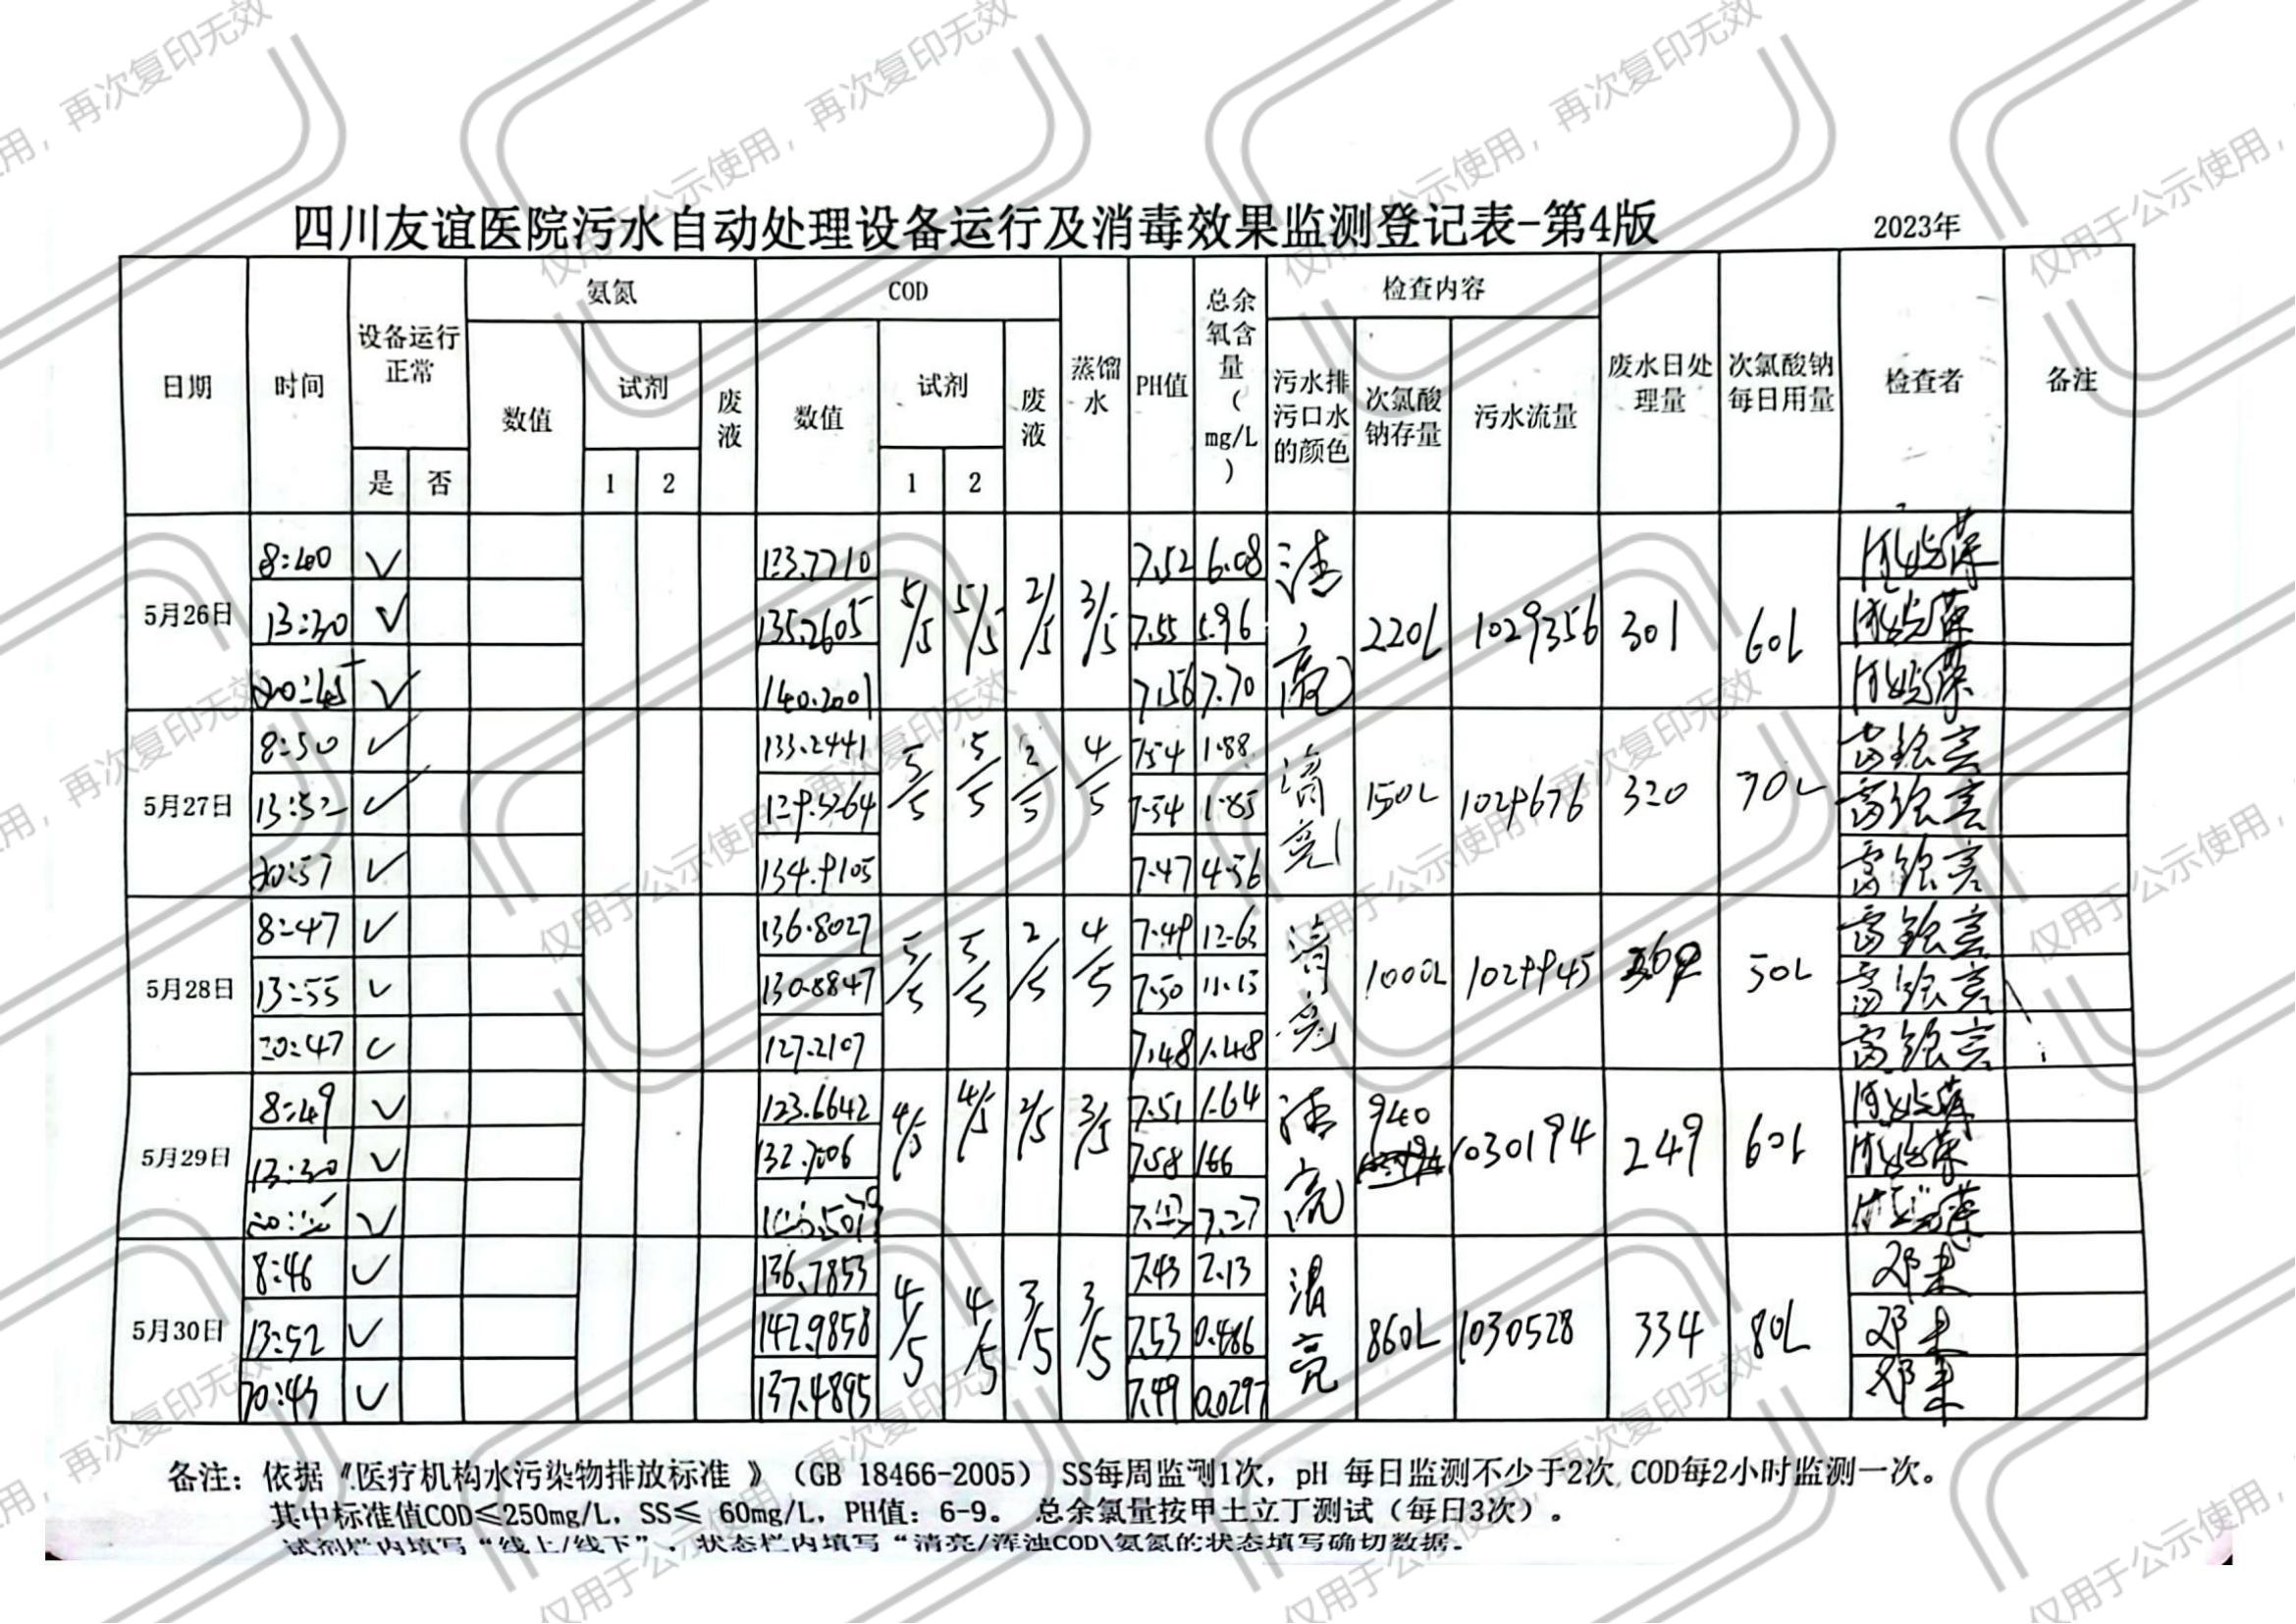 四川友谊医院污水自动处理设备运行及消毒效果监测登记表-第4版 2023年
日期 时间 设备运行正常 是 否 氨氮 数值 试剂 1 2 废液 COD 数值 试剂 1 2 废液 蒸馏水 PH值 总余氧含量(mg/L) 检查内容 污水排污口水的颜色 次氯酸钠存量 污水流量 废水日处理量 次氯酸钠每日用量 检查者 备注
5月26日 5/5 5/5 2/5 3/5 清亮 220L 1029356 301 60L
8:40 ✓ 133.7710 7.52 6.08
13:30 ✓ 135.2605 7.55 5.96
20:45 ✓ 140.2001 7.56 7.70
5月27日 5/5 5/5 2/5 4/5 清亮 150L 1029676 320 70L
8:50 ✓ 133.2441 7.54 1.88
13:52 ✓ 129.5264 7.54 1.85
20:57 ✓ 134.9105 7.47 4.56
5月28日 5/5 5/5 2/5 4/5 清亮 1000L 1029945 50L
8:47 ✓ 136.8027 7.49 12.63
13:55 ✓ 130.8847 7.50 11.15
20:47 ✓ 127.2107 7.48 1.48
5月29日 4/5 4/5 2/5 3/5 清亮 940 1030194 249 60L
8:49 ✓ 123.6642 7.51 1.64
13:30 ✓ 132.7006 7.58 1.66
✓ 7.27
5月30日 4/5 4/5 3/5 3/5 清亮 860L 1030528 334 80L
8:46 ✓ 136.7853 7.43 2.13 邓未
13:52 ✓ 142.9858 7.53 0.486 邓未
20:43 ✓ 137.4895 7.49 0.0297 邓未
备注：依据《医疗机构水污染物排放标准 》（GB 18466-2005） SS每周监测1次，pH 每日监测不少于2次，COD每2小时监测一次。
其中标准值COD≤250mg/L，SS≤ 60mg/L，PH值：6-9。 总余氯量按甲土立丁测试（每日3次）。
试剂栏内填写“线上/线下”，状态栏内填写“清亮/浑浊COD\氨氮的状态填写确切数据。
仅用于公示使用，再次复印无效